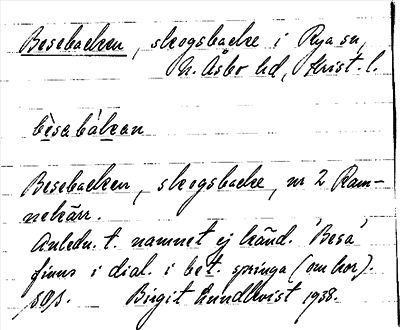 Besebacken, skogsbacke i Rya sn,
N. Åsbo hd, Krist. l.
bèsabákan
Besebacken, skogsbacke, nr 2 Ram-
nekärr.
Anledn. t. namnet ej känd. 'Besa'
finns i dial. i bet. springa (om kor).
Birgit Lundkvist 1938.